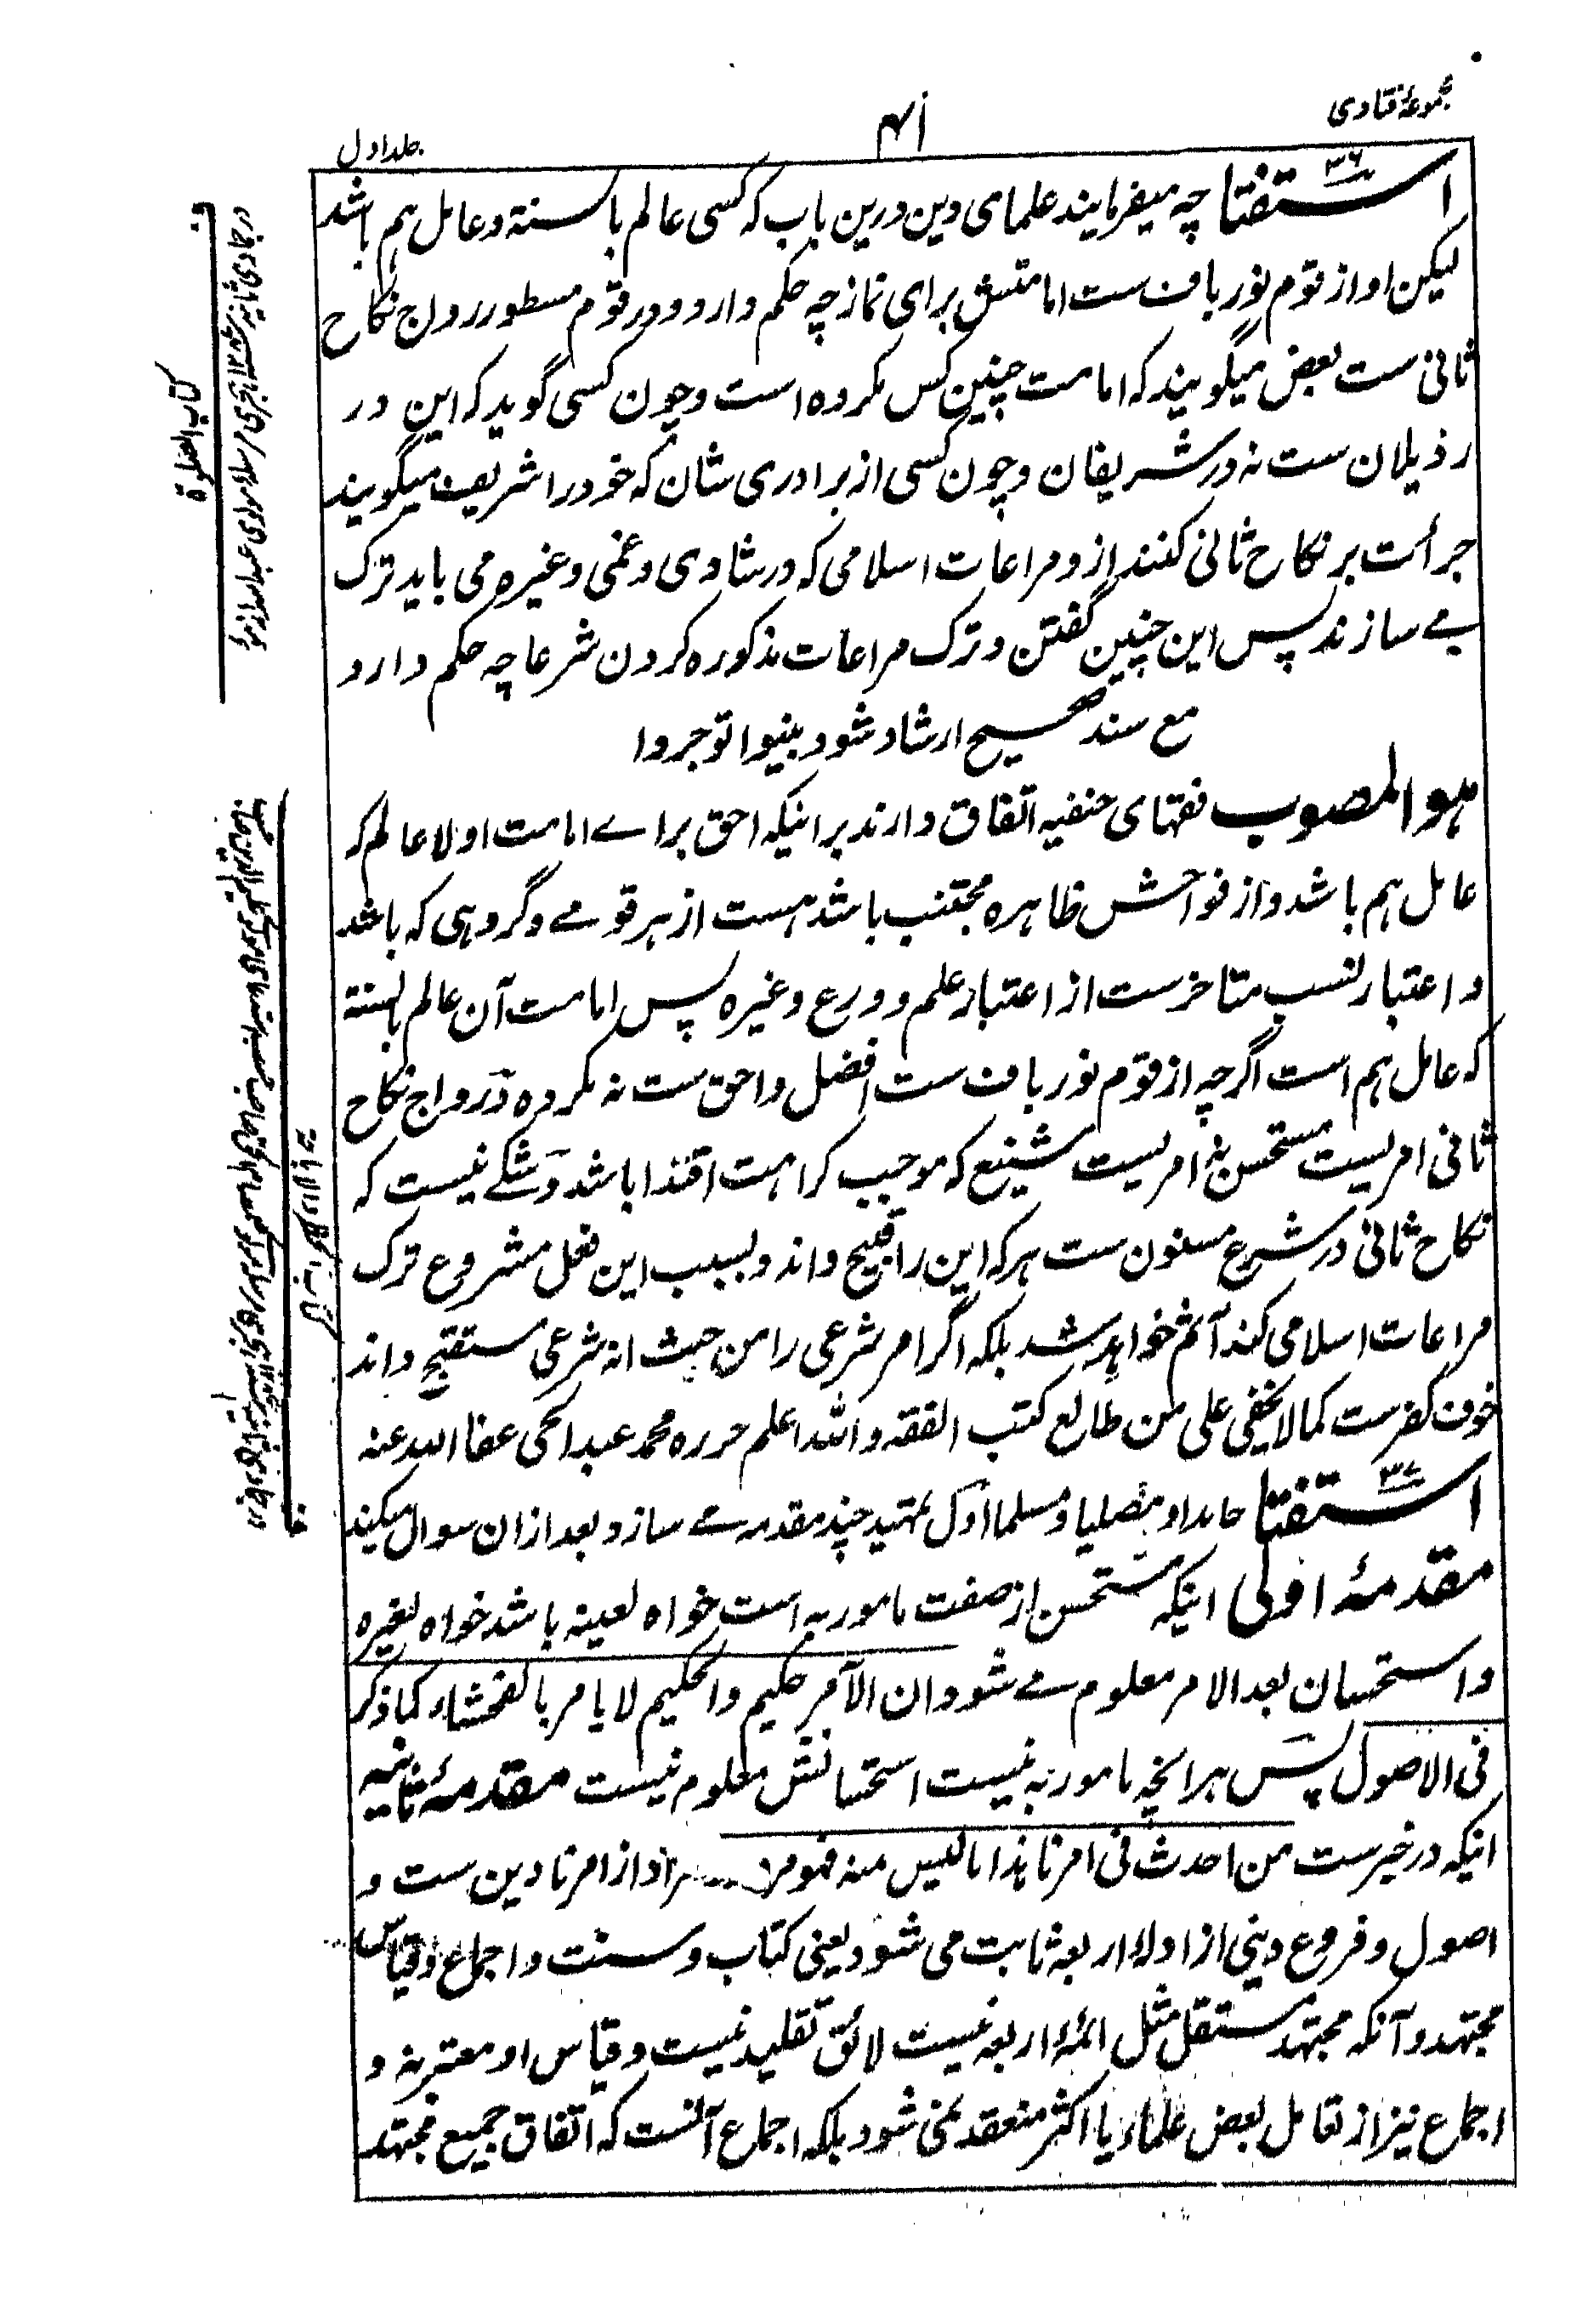 مجموعۂ فتاوی
جلد اول
۳۶
استفتا چه میفرمایند علمای دین درین باب که کسی عالم با لسنة و عامل هم باشد
لیکن او از قوم نور باف ست امامتش برای نماز چه حکم دارد و در قوم مسطور رواج نکاح
ثانی ست بعض میگویند که امامت چنین کس مکروه است و چون کسی گوید که این در
رذیلان ست نه در شریفان و چون کسی از برادری شان که خود را شریف میگویند
جرأت بر نکاح ثانی کنند از و مراعات اسلامی که در شادی و غمی و غیره می باید ترک
می سازند پس این چنین گفتن و ترک مراعات مذکوره کردن شرعا چه حکم دارد
مع سند صحیح ارشاد شود بینوا توجروا
هو المصوب فقهای حنفیه اتفاق دارند بر اینکه احق براے امامت اولا عالم که
عامل هم باشد و از فواحش ظاهره مجتنب باشد هست از هر قومے و گروهی که باشد
و اعتبار نسب متاخرست از اعتبار علم و ورع و غیره پس امامت آن عالم بالسنة
که عامل هم است اگرچه از قوم نور باف ست افضل و احق ست نه مکروه و رواج نکاح
ثانی امریست مستحسن نه امریست شنیع که موجب کراهت اقتدا باشد و شکے نیست که
نکاح ثانی در شرع مسنون ست هر که این را قبیح داند و بسبب این فعل مشروع ترک
مراعات اسلامی کند آثم خواهد شد بلکه اگر امر شرعی را من حیث انه شرعی مستقبح داند
خوف کفرست کما لا یخفی علی من طالع کتب الفقه و الله اعلم حرره محمد عبد الحی عفا الله عنه
۳۷
استفتا حامدا و مصلیا و مسلما اول تمهید چند مقدمه مے سازد و بعد ازان سوال میکند
مقدمۂ اولی اینکه مستحسن از صفت مامور به است خواه لعینه باشد خواه لغیره
و استحسان بعد الامر معلوم مے شود و ان الآمر حکیم و الحکیم لا یامر بالفحشاء کما ذکر
فی الاصول پس هر آنچه مامور به نیست استحسانش معلوم نیست مقدمۂ ثانیه
اینکه در خبرست من احدث فی امرنا هذا ما لیس منه فهو مراد از امرنا دین ست و
اصول و فروع دینی از ادلۂ اربعه ثابت می شود یعنی کتاب و سنت و اجماع و قیاس
مجتهد و آنکه مجتهد مستقل مثل ائمۂ اربعه نیست لائق تقلید نیست و قیاس او معتبر نه و
اجماع نیز از تعامل بعض علماء یا اکثر منعقد نمی شود بلکه اجماع آنست که اتفاق جمیع مجتهد
کتاب الصلوة